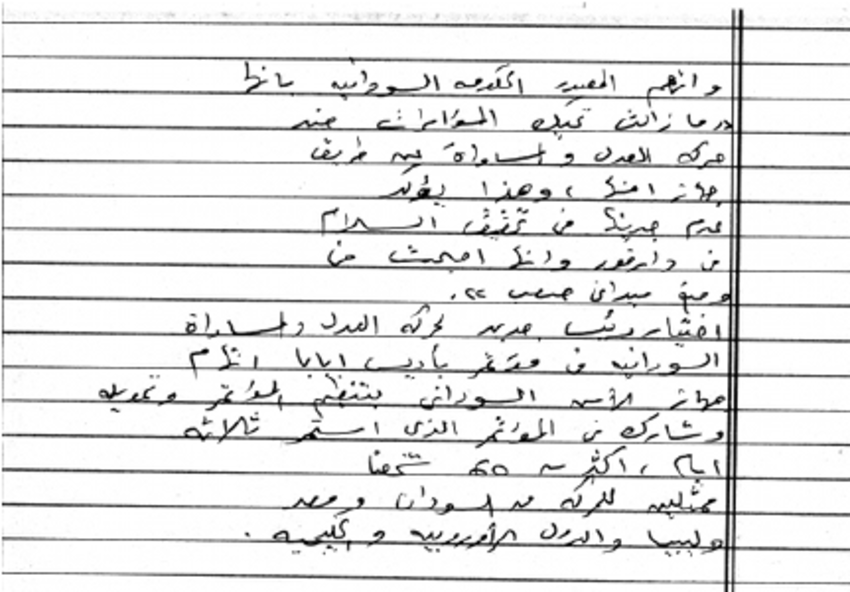 واتهم المصدر الحكومه السودانيه بانها
« ما زالت تحيك المؤامرات ضد
حركه العدل والمساواة عن طريق
جهاز امنها ، وهذا يؤكد
عدم جديتها في تحقيق السلام
في دارفور وانها اصبحت في
وضع ميداني صعب » .
اختيار رئيس جديد لحركه العدل والمساواة
السودانيه في مؤتمر بأديس ابابا اتهام
جهاز الأمن السوداني بتنظيم المؤتمر وتمويله
وشارك في المؤتمر الذي استمر ثلاثه
ايام ، اكثر من شخصا
ممثلين للحركه من السودان ومصر
وليبيا والدول الأوروبيه والخليجيه .